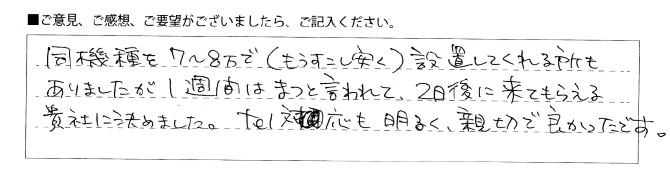 ■ご意見、ご感想、ご要望がございましたら、ご記入ください。
同機種を7〜8万で(もうすこし安く)設置してくれる所も
ありましたが1週間はまつと言われて、2日後に来てもらえる
貴社に決めました。tel対応も明るく、親切で良かったです。